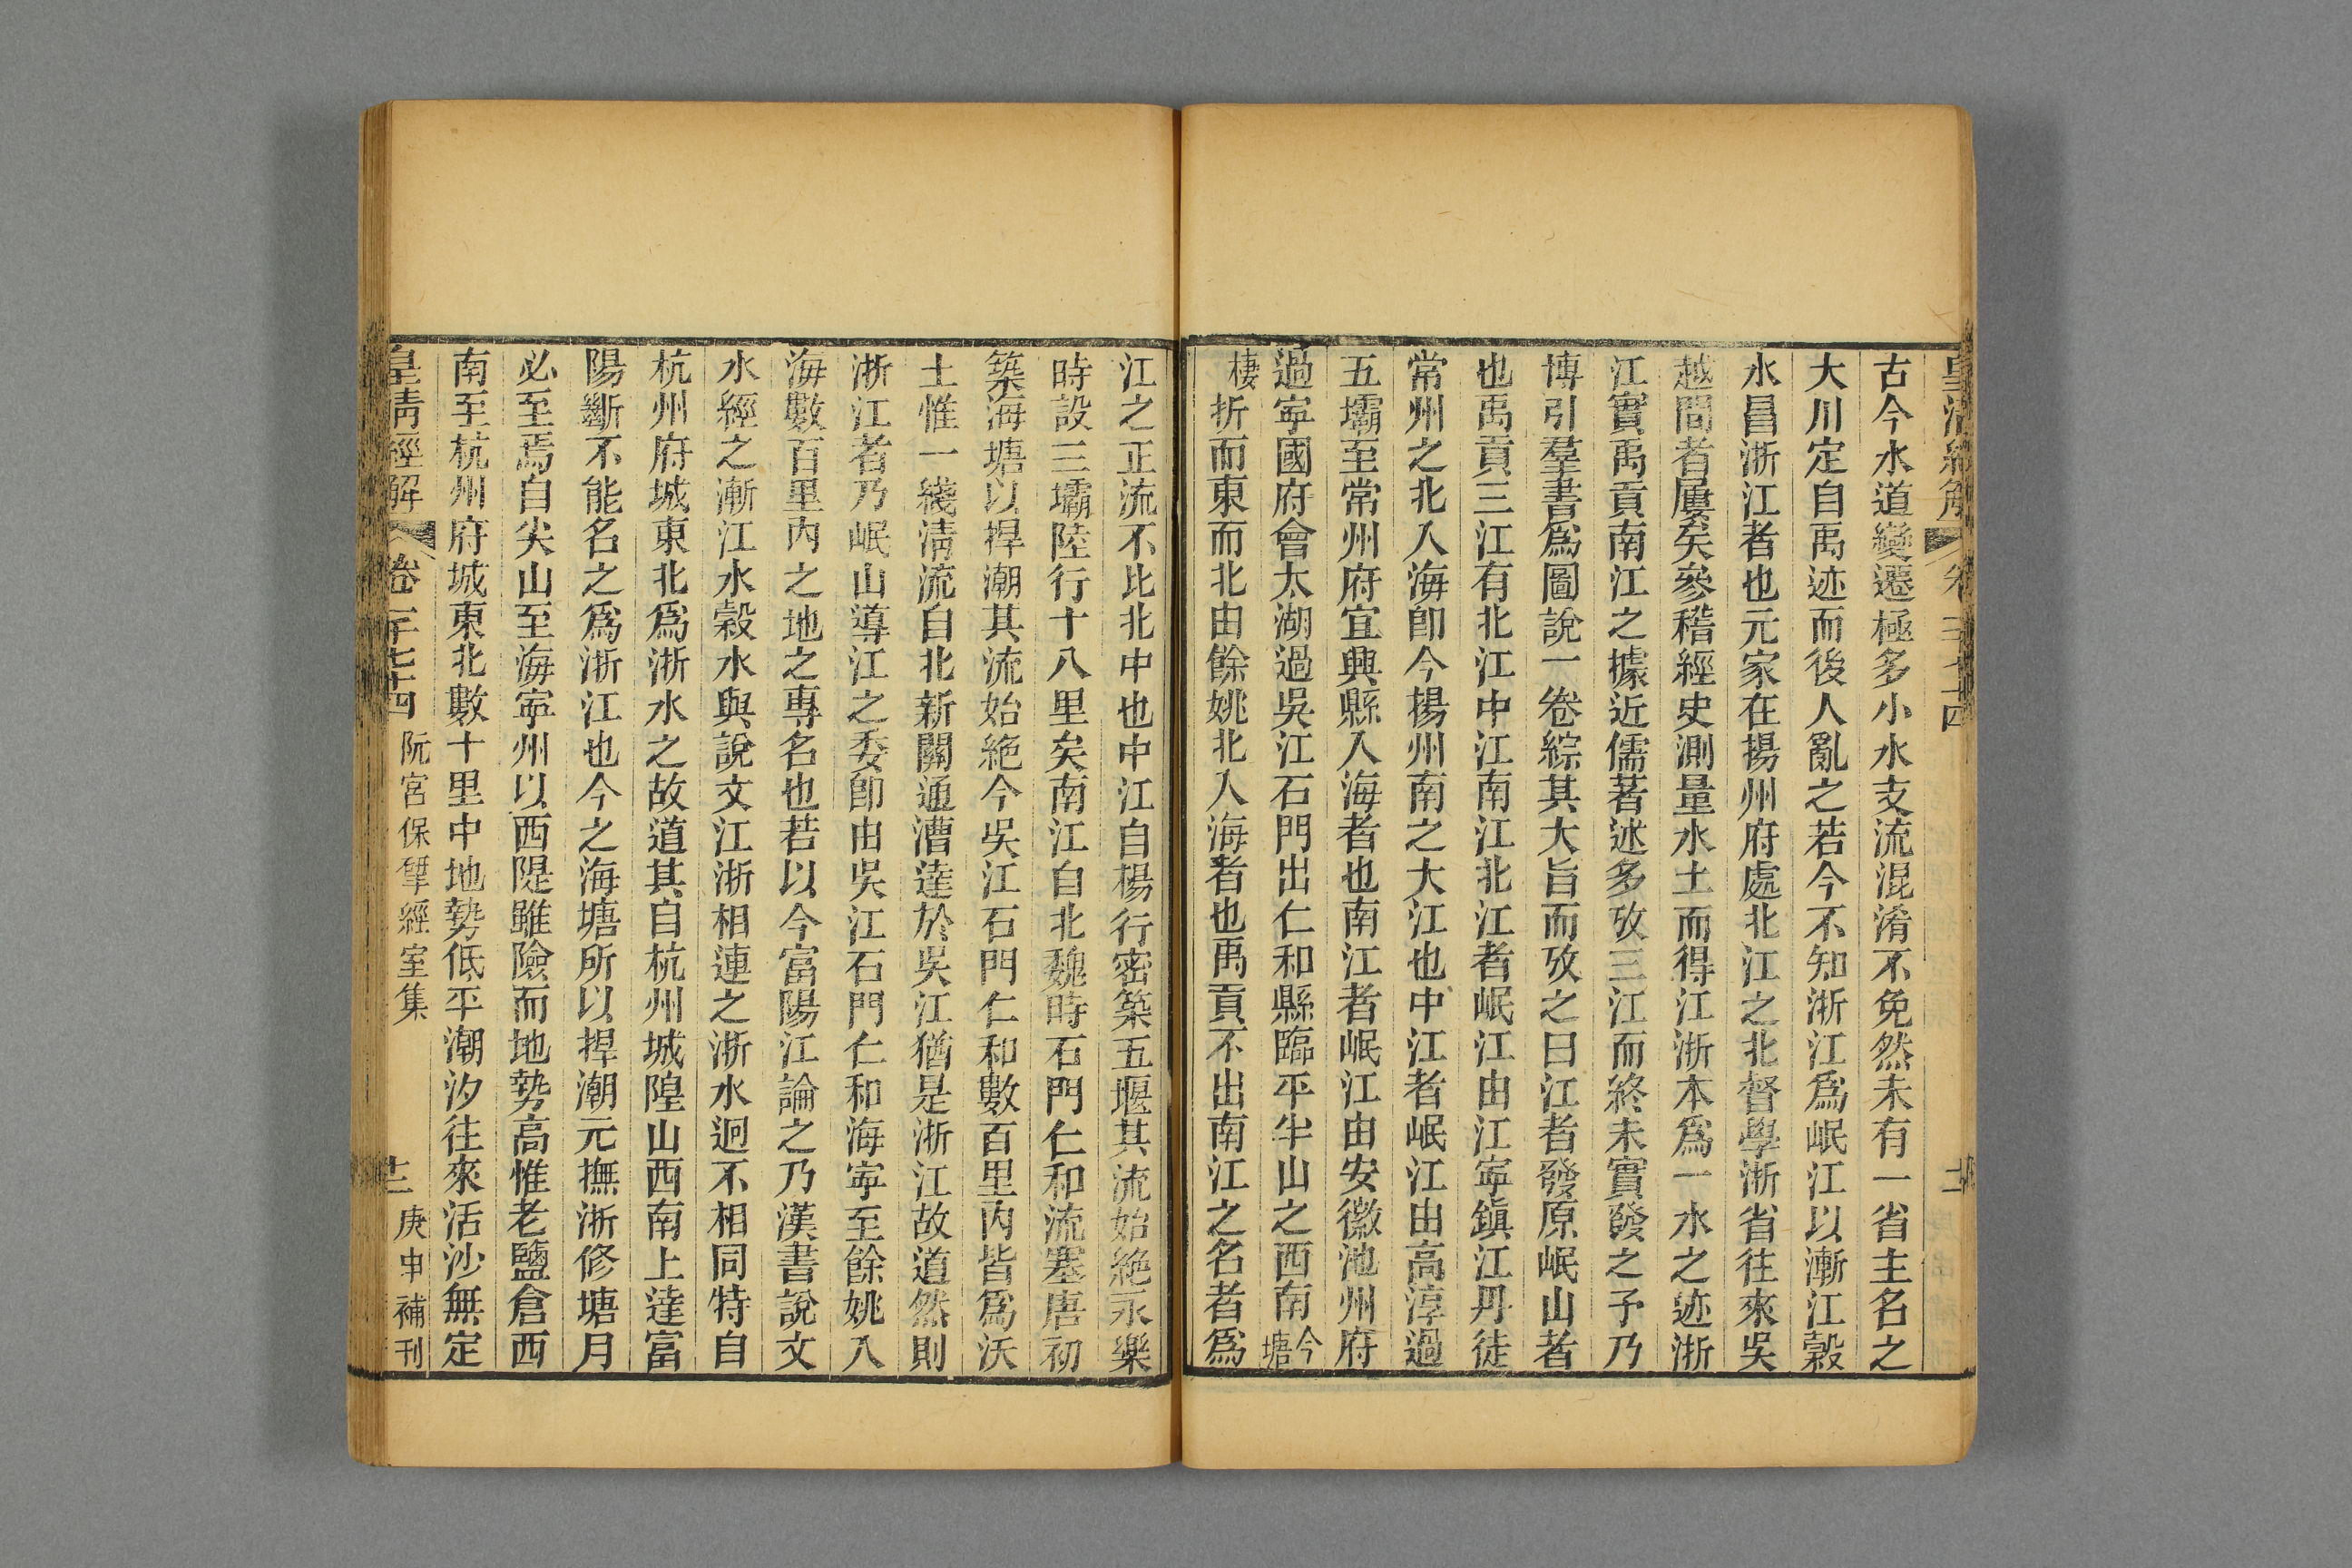 古今水道變遷極多小水支流混淆不免然未有一省主名之
大川定自禹迹而後人亂之若今不知浙江爲岷江以漸江穀
水昌浙江者也元家在揚州府處北江之北督學浙省往來吳
越間者屢矣參稽經史測量水土而得江浙本爲一水之迹浙
江實禹貢南江之據近儒著述多攷三江而終未實發之予乃
博引羣書爲圖說一卷綜其大旨而攷之曰江者發原岷山者
也禹貢三江有北江中江南江北江者岷江由江寧鎭江丹徒
常州之北入海卽今揚州南之大江也中江者岷江由高淳過
五壩至常州府宜興縣入海者也南江者岷江由安徽池州府
過寧國府會太湖過吳江石門出仁和縣臨平半山之西南今塘
棲折而東而北由餘姚北入海者也禹貢不出南江之名者爲
江之正流不比北中也中江自楊行密築五堰其流始絶永樂
時設三壩陸行十八里矣南江自北魏時石門仁和流塞唐初
築海塘以捍潮其流始絶今吳江石門仁和數百里內皆爲沃
土惟一綫淸流自北新關通漕達於吳江猶是浙江故道然則
浙江者乃岷山導江之委卽由吳江石門仁和海寧至餘姚入
海數百里內之地之專名也若以今富陽江論之乃漢書說文
水經之漸江水穀水與說文江浙相連之浙水迥不相同特自
杭州府城東北爲浙水之故道其自杭州城隍山西南上達富
陽斷不能名之爲浙江也今之海塘所以捍潮元撫浙修塘月
必至焉自尖山至海寧州以西隄雖險而地勢高惟老鹽倉西
南至杭州府城東北數十里中地勢低平潮汐往來活沙無定
皇清經解 卷一千七十四 阮宮保揅經室集 十二 庚申補刊